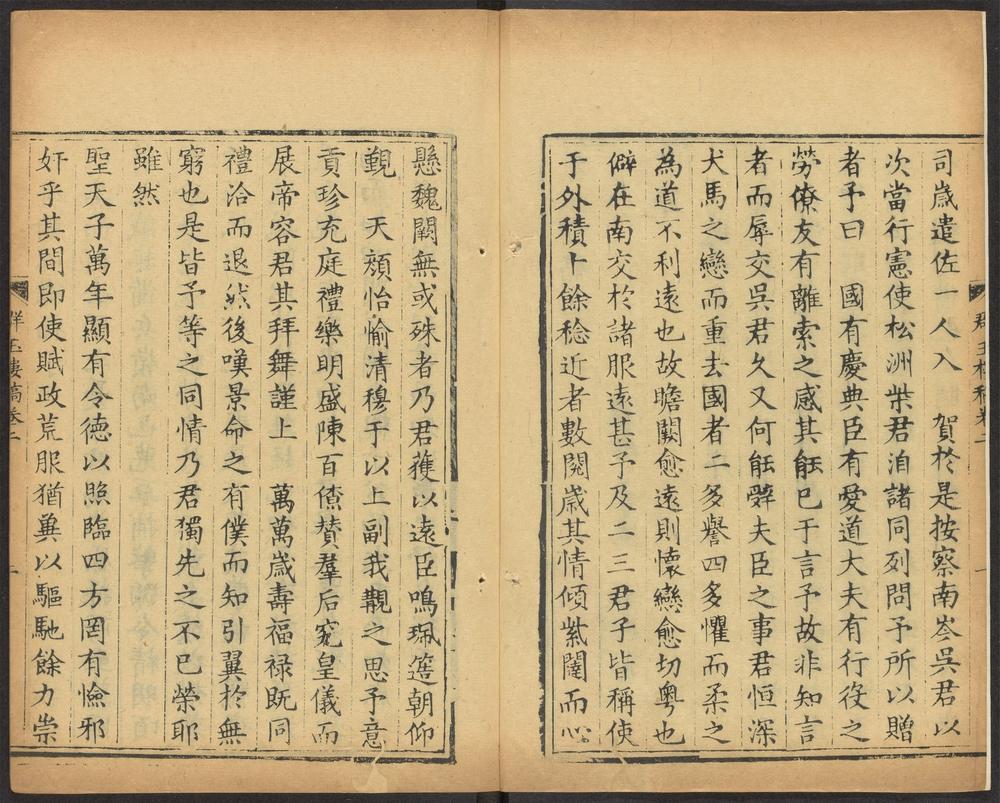 司歲遣佐一人入　賀於是按察南岑吳君以
次當行憲使松洲柴君洎諸同列問予所以贈
者予曰　國有慶典臣有愛道大夫有行役之
勞僚友有離索之感其能已于言予故非知言
者而辱交吳君久又何能辭夫臣之事君恒深
犬馬之戀而重去國者二多譽四多懼而柔之
為道不利遠也故瞻闕愈遠則懷戀愈切粵也
僻在南交於諸服遠甚予及二三君子皆稱使
于外積卜餘稔近者數閱歲其情傾紫闥而心
懸魏闕無或殊者乃君獲以遠臣鳴珮簉朝仰
覲　天頰怡愉清穆于以上副我覯之思予意
貢珍充庭禮樂明盛陳百僚贊羣后究皇儀而
展帝容君其拜舞謹上　萬萬歲壽福禄既同
禮洽而退然後嘆景命之有僕而知引翼於無
窮也是皆予等之同情乃君獨先之不已榮耶
雖然
聖天子萬年顯有令德以照臨四方罔有憸邪
奸乎其間即使賦政荒服猶兼以驅馳餘力崇
羣玉樓稿卷二
一